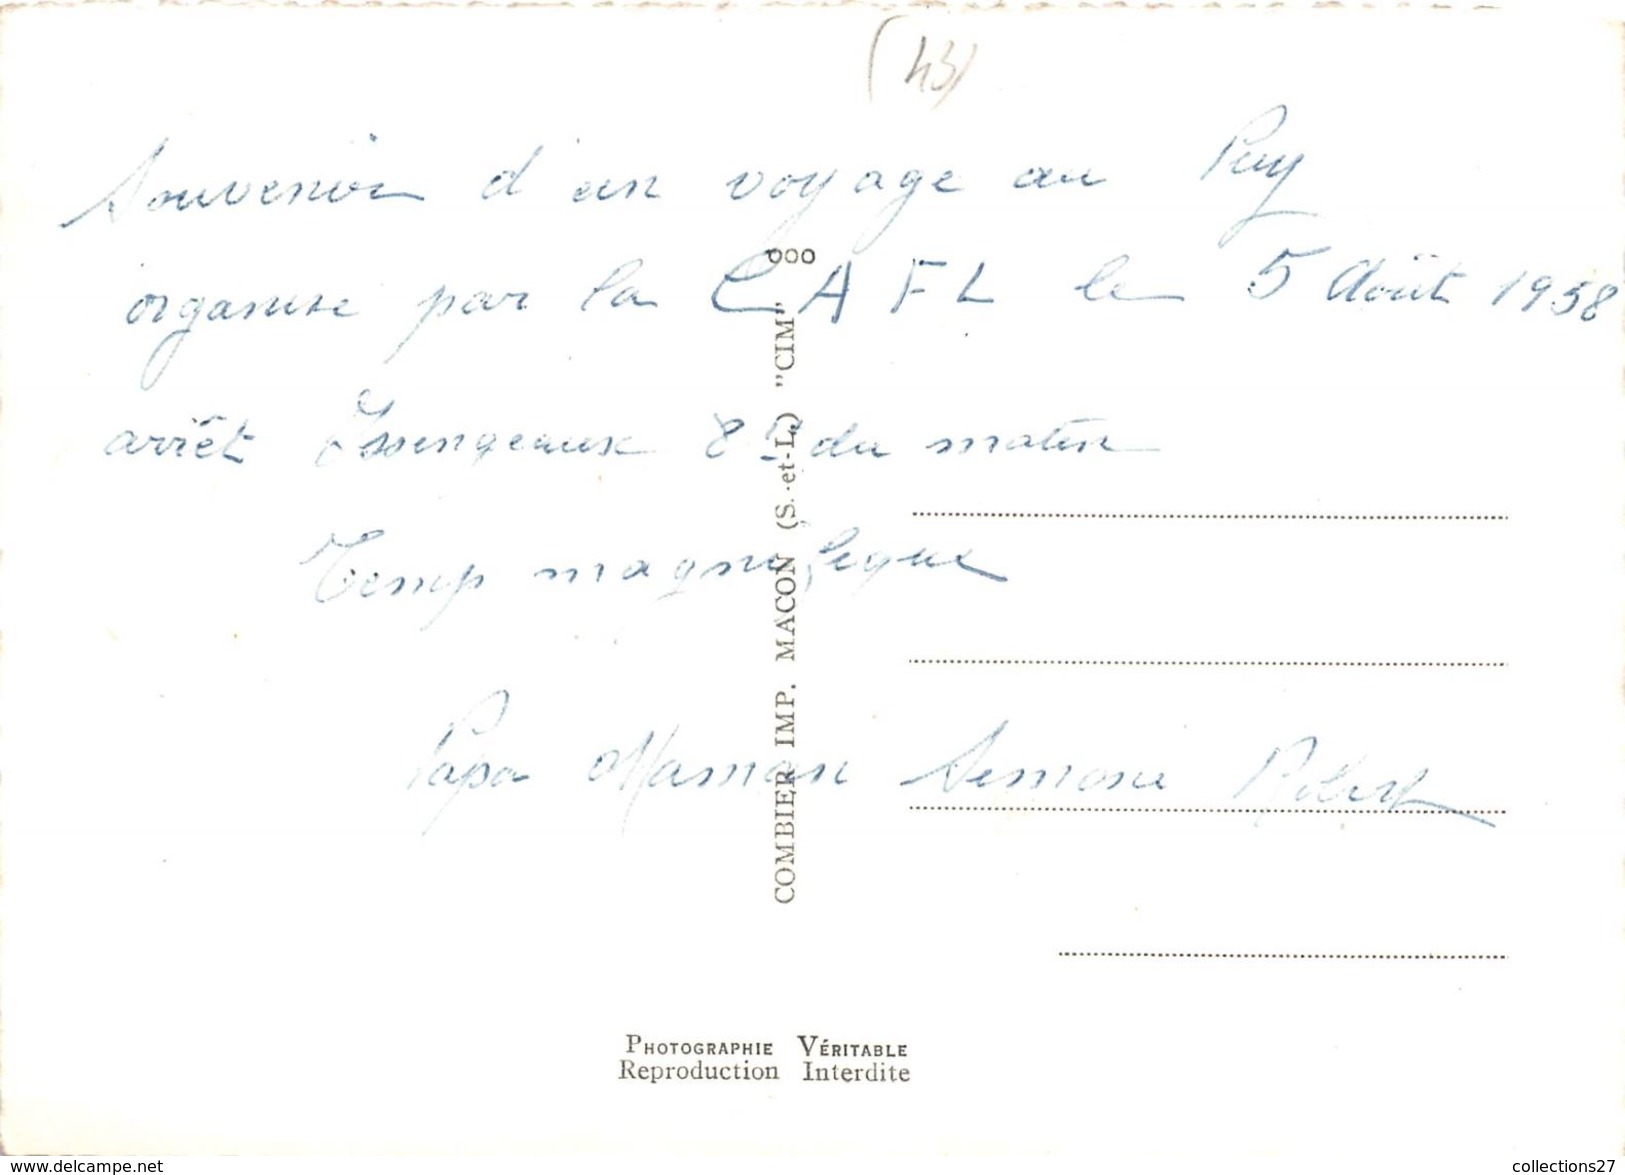 (43)
Souvenir d'un voyage au Puy
organise par la CAFL le 5 Août 1958
arrêt Issengeaux 8 H du matin
Temp magnifique
Papa Maman Simone Robert
COMBIER IMP. MACON (S.-et-L.) "CIM" ooo
PHOTOGRAPHIE VÉRITABLE
Reproduction Interdite
www.delcampe.net
collections27